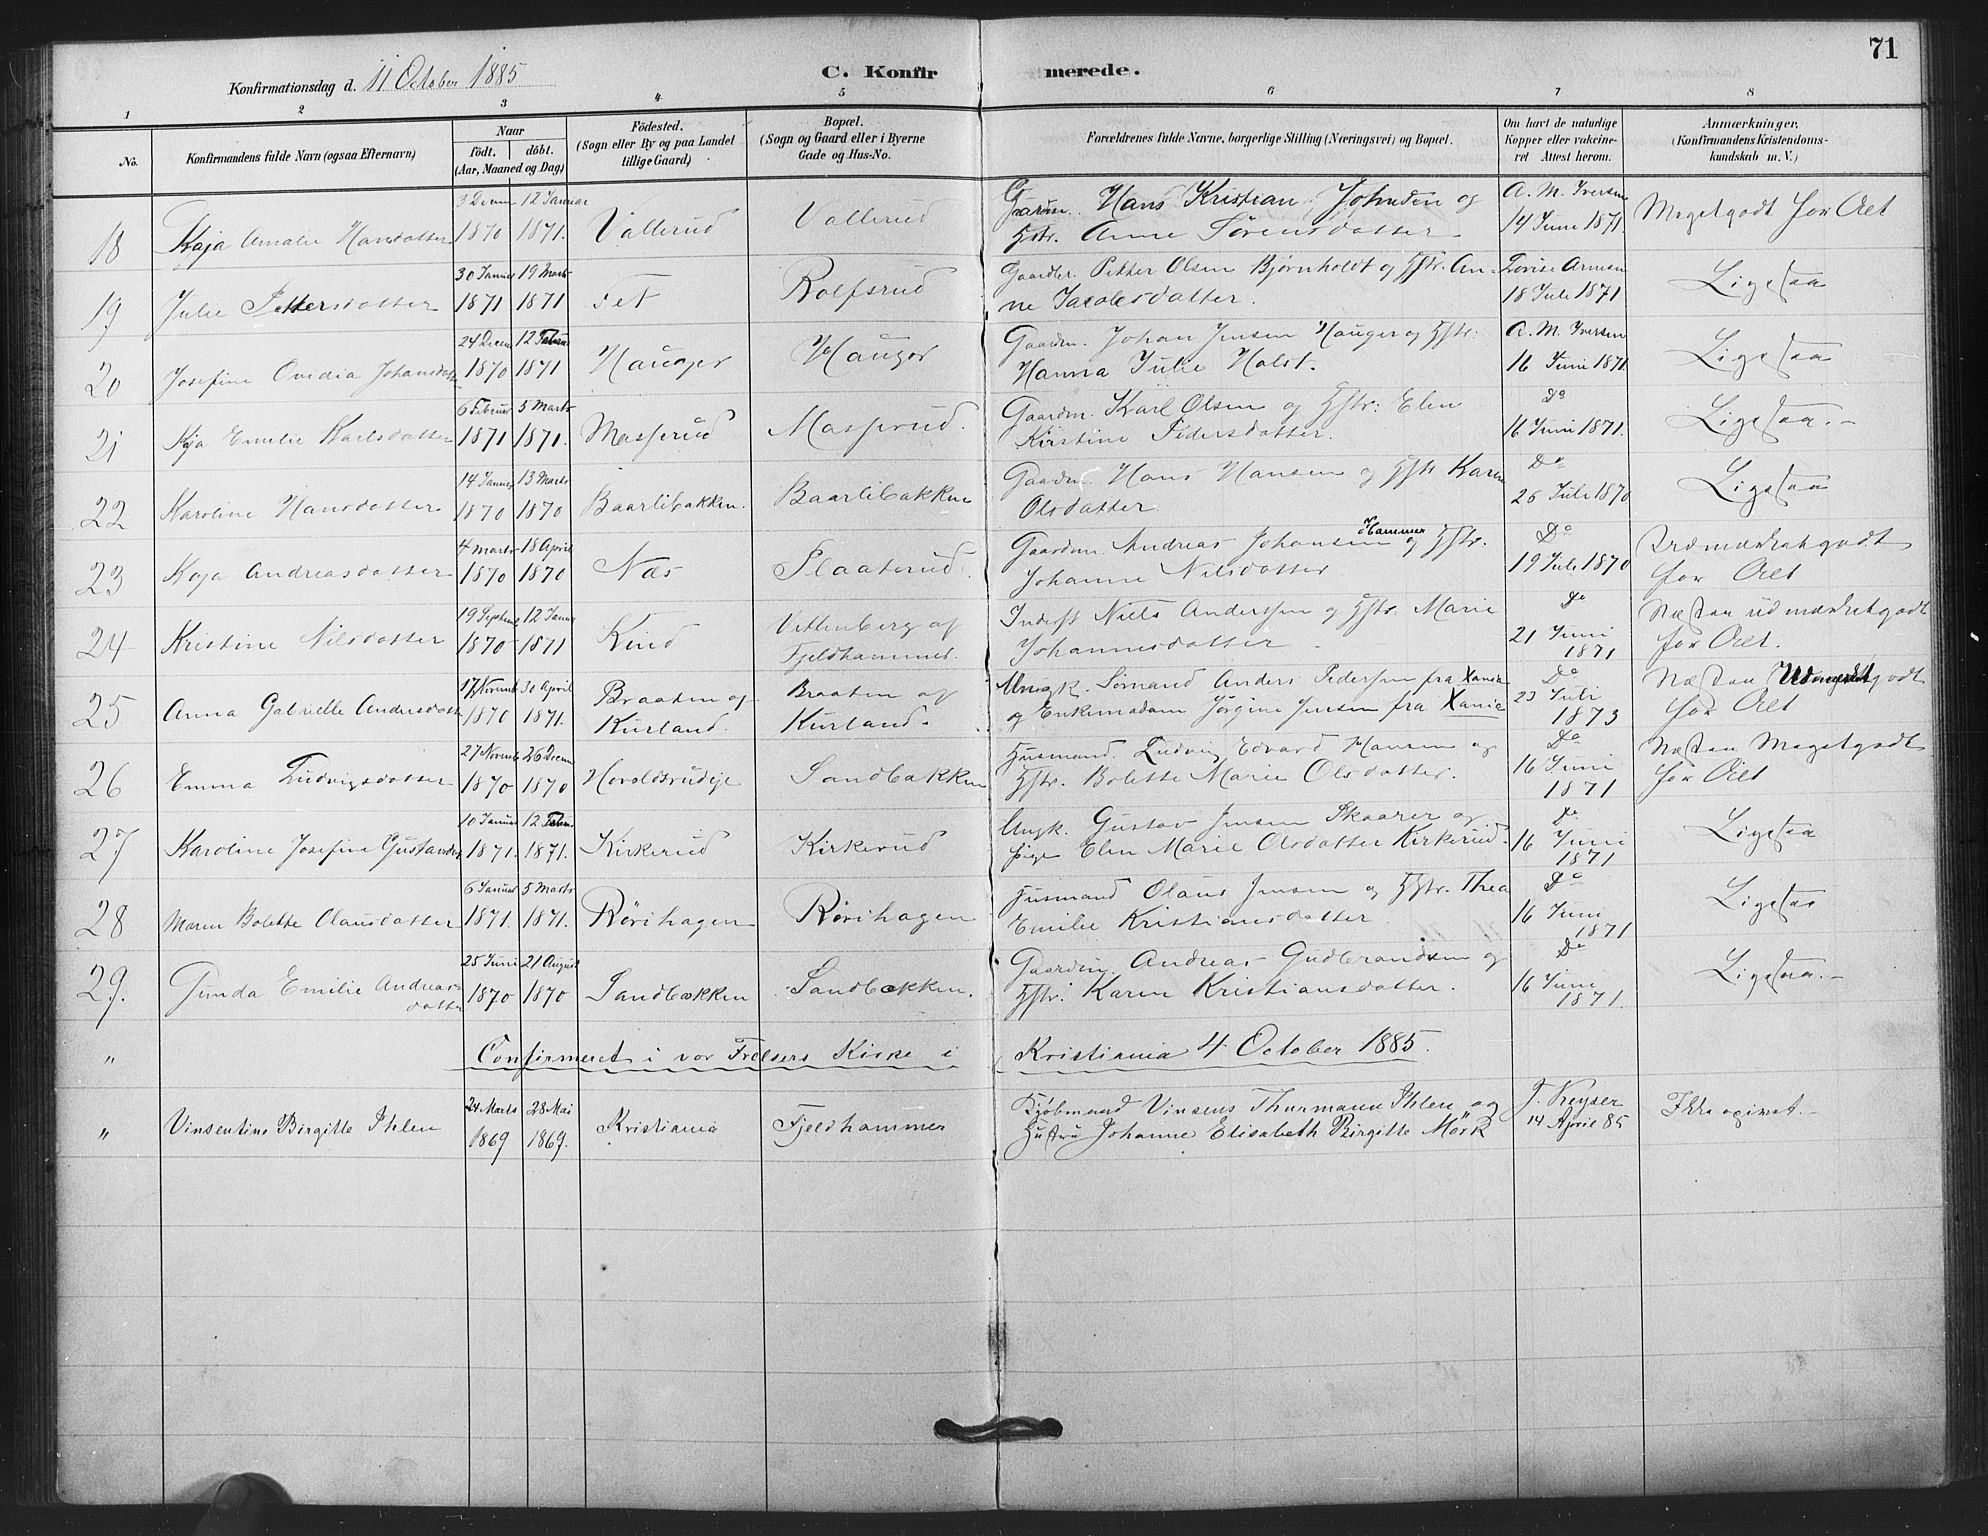 71
Konfirmationsdag d. 11 October 1885
C. Konfirmerede.
1 2 3 4 5 6 7 8
No.
Konfirmandens fulde Navn (ogsaa Efternavn)
Naar
födt. döbt.
(Aar, Maaned og Dag)
Födested.
(Sogn eller By og paa Landet
tillige Gaard)
Bopæl.
(Sogn og Gaard eller i Byerne
Gade og Hus-No.
Forældrenes fulde Navne, borgerlige Stilling (Næringsvei) og Bopæl.
Om havt de naturlige
Kopper eller vakcine-
ret Attest herom.
Anmærkninger.
(Konfirmandens Kristendoms-
kundskab m. V.)
18 Kaja Amalie Hansdatter
3 Decem 1870
12 Januar 1871.
Vallerud
Vallerud
Gaardm. Hans Kristian Johnsen og
Hstr. Anne Sørensdatter.
A. M. Iversen
14 Juni 1871.
Megetgodt for Alt
19 Julie Pettersdatter
30 Januar 1871
19 Marts 1871
Fet
Rolfsrud
Gaardbr. Petter Olsen Bjørnholdt og Hstr. An-
ne Jacobsdatter.
18 Juli 1871
Ligesaa
20 Josefine Ovidia Johansdatt
24 Decem 1870
12 Februar 1871
Hauger
Hauger
Gaardm. Johan Jensen Hauger og Hstr.
Hanna Julie Holst.
A. M. Iversen
16 Juni 1871.
Ligesaa
21 Kaja Emilie Karlsdatter
6 Februar 1871
5 Marts 1871.
Masserud
Masserud.
Gaardm. Karl Olsen og Hstr: Elen
Kirstine Pedersdatter.
Do
16 Juni 1871.
Ligesaa.-
22 Karoline Hansdatter
14 Januar 1870
13 Marts 1870
Baarlibakken.
Baarlibakken
Gaardm. Hans Hansen og Hstr Karen
Olsdatter
Do
26 Juli 1870
Ligesaa
23 Kaja Andreasdatter
4 Marts 1870
18 April 1870
Næs
Slaaterud.
Gaardm. Andreas Johansen Hammer og Hstr.
Johanne Nilsdatter
Do
19 Juli 1870
Udmærketgodt
for Alt
24 Kristine Nilsdatter
19 Septemb 1870
12 Janua 1871
Kind
Vittenberg af
Fjeldhammer.
Inderst Niels Anderssen og Hstr. Marie
Johannesdatter.
Do
21 Juni
1871
Næsten udmærketgodt
for Alt.
25 Anna Gabrielle Andersdatt
17 Novemb 1870
30 April 1871.
Braaten og
Kurland.
Braaten af
Kurland.
Ungk. Sömand Anders Pedersen fra Xania
og Enkemadam Jörgine Jensen fra Xania
Do
23 Juli
1873
Næsten Udmærketgodt
for Alt
26 Emma Ludvigsdatter
27 Novemb 1870
26 Decem 1870
Haroldsrudeje
Sandbakken
Husmand. Ludvig Edvard Hansen og
Hstr. Bolette Marie Olsdatter.
Do
16 Juni
1871
Næsten Megetgodt
for Alt
27 Karoline Josefine Gustavsdtr
10 Januar 1871.
12 Febru. 1871.
Kirkerud
Kirkerud
Ungk. Gustav Jensen Skaarer og
Pige Elen Marie Olsdatter Kirkerud.
Do
16 Juni
1871
Ligesaa
28 Maren Bolette Olausdatter
6 Januar 1871.
5 Marts 1871.
Rörihagen
Rörihagen
Husmand Olaus Jensen og Hstr. Thea
Emilie Kristiansdatter
Do
16 Juni
1871
Ligesaa
29. Gunda Emilie Andreas-
datter
25 Juni 1870
21 August 1870
Sandbakken
Sandbakken.
Gaardm. Andreas Gudbrandsen og
Hstr. Karen Kristiansdatter.
Do
16 Juni
1871.
Ligesaa.-
" Confirmeret i vor Frelsers Kirke i Kristiania 4 October 1885.
" Vinsentine Birgitte Ihlen
24 Marts 1869
28 Mai 1869.
Kristiania
Fjeldhammer
Kjöbmand Vinsens Thurmann Ihlen og
Hustru Johanne Elisabeth Birgitte Mörk
J. Keyser
14 April 85
Ikke opgivet.-